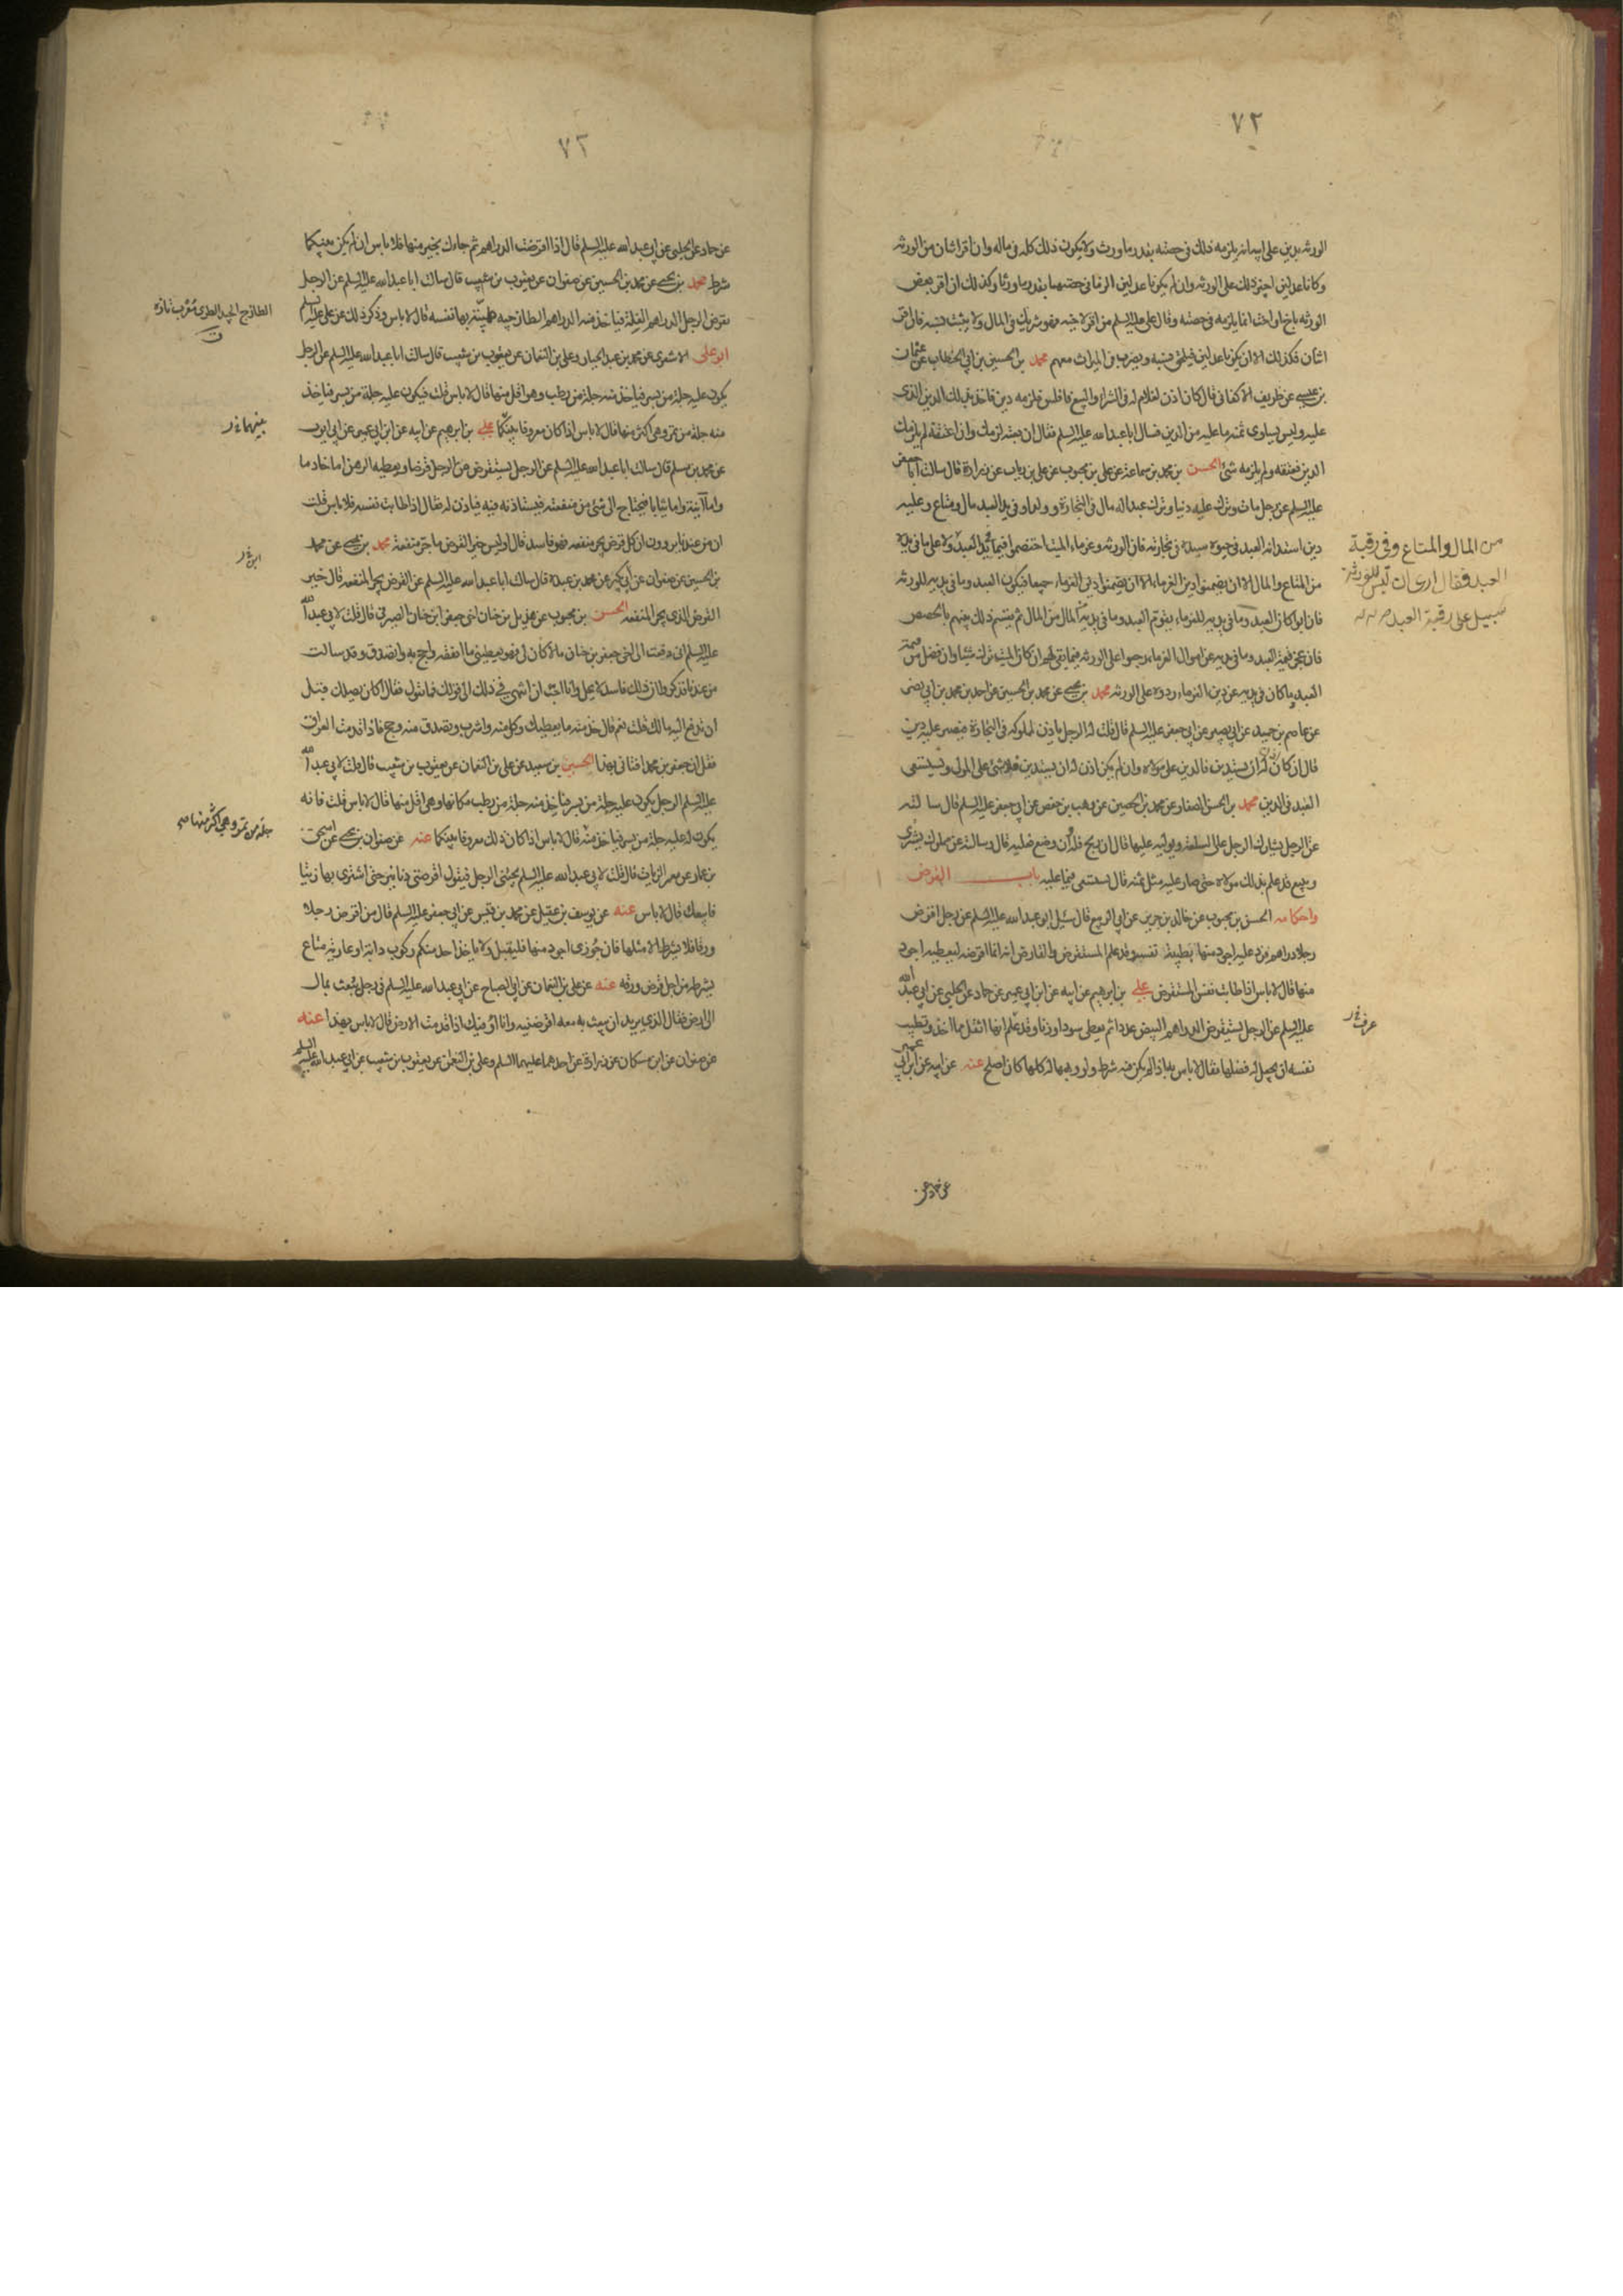 ٧٢
الورثه بدين على ابيه انه يلزمه ذلك في حصته بقدر ما ورث ولا يكون ذلك كله في ماله وان اقر اثنان من الورثه
وكانا عدلين اجيز ذلك على الورثه وان لم يكونا عدلين الزما في حصتهما بقدر ما ورثا وكذلك ان اقر بعض
الورثه باخ او اخت انما يلزمه في حصته وقال علي عليه السلم من اقر لاخيه فهو شريك في المال ولا يثبت نسبه فان اقر
اثنان فكذلك الا ان يكونا عدلين فيلحق بنسبه ويضرب في الميراث معهم محمد بن الحسين بن ابي الخطاب عن عثمان
بن عيسى عن ظريف الاكفاني قال كان اذن لغلام له في الشراء والبيع فافلس فلزمه دين فاخذ بذلك الدين الذي
عليه وليس يساوي ثمنه ما عليه من الدين فسال ابا عبد الله عليه السلم فقال ان بعته لزمك وان اعتقته لم يلزمك
الدين فعتقه ولم يلزمه شئ الحسن بن محمد بن سماعة عن علي بن محبوب عن علي بن رياب عن زرارة قال سالت ابا جعفر
عليه السلم عن رجل مات وترك عليه دينا وترك عبدا له مال في التجارة وولدا وفي يد العبد مال ومتاع وعليه
دين استدانه العبد في حيوة سيده في تجارته فان الورثه وغرماء الميت اختصموا فيما في يد العبد ولا على ما في يده
من المال والمتاع وفي رقبة
العبد فقال ارى ان ليس للورثة
سبيل على رقبة العبد
من المتاع والمال الا ان يضمنوا دين الغرماء الا ان يضمنوا دين الغرماء جميعا فيكون العبد وما في يديه للورثه
فان ابوا كان العبد وما في يديه للغرماء يقوم العبد وما في يديه من المال ثم يقسم ذلك بينهم بالحصص
فان عجز قيمة العبد وما في يديه عن اموال الغرماء رجعوا على الورثه فيما بقي لهم ان كان الميت ترك شيئا وان فضل من قيمة
العبد وما كان في يديه عن دين الغرماء رده على الورثه محمد بن يحيى عن محمد بن الحسين عن احمد بن محمد بن ابي نصر
عن عاصم بن حميد عن ابي بصير عن ابي جعفر عليه السلم قال قلت له الرجل ياذن لمملوكه في التجارة فيصير عليه دين
قال ان كان اذن له ان يستدين فالدين على مولاه وان لم يكن اذن له ان يستدين فلا شئ على المولى ويستسعى
العبد في الدين محمد بن الحسن الصفار عن محمد بن الحسين عن وهب بن حفص عن ابي جعفر عليه السلم قال سالته
عن الرجل يشارك الرجل على السلعة ويوليه عليها قال ان ربح فله وان وضع فعليه قال وسالته عن مملوك يشتري
ويبيع قد علم بذلك مولاه حتى صار عليه مثل ثمنه قال يستسعى فيما عليه باب القرض
واحكامه الحسن بن محبوب عن خالد بن جرير عن ابي الربيع قال سئل ابو عبد الله عليه السلم عن رجل اقرض
رجلا دراهم فرد عليه اجود منها بطيبة نفسه وقد علم المستقرض والقارض انه انما اقرضه ليعطيه اجود
منها قال لا باس اذا طابت نفس المستقرض علي بن ابرهيم عن ابيه عن ابن ابي عمير عن حماد عن الحلبي عن ابي عبد الله
عليه السلم عن الرجل يستقرض الدراهم البيض عددا ثم يعطي سودا وزنا وقد علم انها اثقل مما اخذ وتطيب
نفسه ان يجعل له فضلها فقال لا باس به اذا لم يكن فيه شرط ولو وهبها له كلها كان اصلح عنه عن ابيه عن ابن ابي عمير
عن حماد عن
٧٣
عن حماد عن الحلبي عن ابي عبد الله عليه السلم قال اذا اقرضت الدراهم ثم جاءك بخير منها فلا باس ان لم يكن بينكما
شرط محمد بن يحيى عن محمد بن الحسين عن صفوان عن يعقوب بن شعيب قال سالت ابا عبد الله عليه السلم عن الرجل
يقرض الرجل الدراهم الغلة فياخذ منه الدراهم الطازجيه طيبة بها نفسه قال لا باس وذكر ذلك عن علي عليه السلم
ابو علي الاشعري عن محمد بن عبد الجبار وعلي بن النعمان عن يعقوب بن شعيب قال سالت ابا عبد الله عليه السلم عن الرجل
يكون عليه جلة من بسر فياخذ منه جلة من رطب وهو اقل منها قال لا باس قلت فيكون عليه جلة من بسر فياخذ
منه جلة من تمر وهي اكثر منها قال لا باس اذا كان معروفا بينكما علي بن ابرهيم عن ابيه عن ابن ابي عمير عن ابي ايوب
عن محمد بن مسلم قال سالت ابا عبد الله عليه السلم عن الرجل يستقرض من الرجل قرضا ويعطيه الرهن اما خادما
واما آنية واما ثيابا فيحتاج الى شئ من منفعته فيستاذنه فيه فياذن له فقال اذا طابت نفسه فلا باس قلت
ان من عندنا يروون ان كل قرض يجر منفعه فهو فاسد قال اوليس خير القرض ما جر منفعة محمد بن يحيى عن محمد
بن الحسين عن صفوان عن ابن بكير عن محمد بن عبده قال سالت ابا عبد الله عليه السلم عن القرض يجر المنفعه قال خير
القرض الذي يجر المنفعه الحسن بن محبوب عن هذيل بن حنان اخي جعفر ابن حنان الصيرفي قال قلت لابي عبد الله
عليه السلم اني دفعت الى اخي جعفر بن حنان مالا كان لي فهو يعطيني ما انفقه واحج به واتصدق وقد سالت
من عندنا فذكروا ان ذلك فاسد لا يحل وانا احب ان انتهي في ذلك الى قولك فما تقول فقال اكان يصلك قبل
ان تدفع اليه مالك قلت نعم قال خذ منه ما يعطيك وكل منه واشرب وتصدق منه وحج فاذا قدمت العراق
فقل ان جعفر بن محمد افتاني بهذا الحسين بن سعيد عن علي بن النعمان عن يعقوب بن شعيب قال قلت لابي عبد الله
عليه السلم الرجل يكون عليه جلة من بسر فياخذ منه جلة من رطب مكانها وهي اقل منها قال لا باس قلت فانه
يكون له عليه جلة من بسر فياخذ منه قال لا باس اذا كان ذلك معروفا بينكما عنه عن صفوان بن يحيى عن اسحق
جلة من تمر وهي اكثر منها
بن عمار عن عمر الزيات قال قلت لابي عبد الله عليه السلم يجيئني الرجل فيقول اقرضني دنانير حتى اشتري بها زيتا
فابيعك قال لا باس عنه عن يوسف بن عقيل عن محمد بن قيس عن ابي جعفر عليه السلم قال من اقرض رجلا
ورقا فلا يشترط الا مثلها فان جوزي اجود منها فليقبل ولا ياخذ احد منكم ركوب دابة او عارية متاع
يشترط من اجل قرض ورقه عنه عن علي بن النعمان عن ابي الصباح عن ابي عبد الله عليه السلم في رجل يبعث بمال
الى ارض فقال الذي يريد ان يبعث به معه اقرضنيه وانا اوفيك اذا قدمت الارض قال لا باس بهذا عنه
عن صفوان عن ابن مسكان عن زرارة عن احدهما عليهما السلم وعلي بن النعمان عن يعقوب بن شعيب عن ابي عبد الله عليه السلم